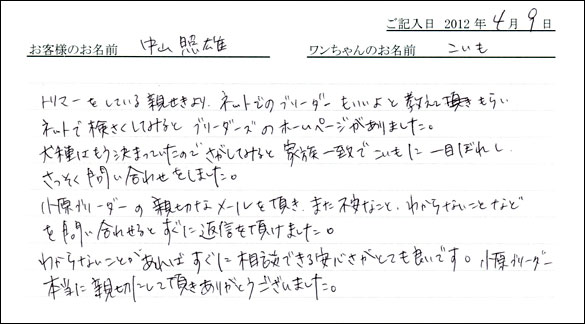 ご記入日 2012 年 4 月 9 日
お客様のお名前 中山 照雄 ワンちゃんのお名前 こいも
トリマーをしている親せきより、ネットでのブリーダーもいいよと教えて頂きもらい
ネットで検さくしてみると ブリーダーズのホームページがありました。
犬種はもう決まっていたので さがしてみると 家族一致で こいもに一目ぼれし、
さっそく問い合わせをしました。
小原ブリーダーの親切なメールを頂き、また不安なこと、わからないことなど
を問い合わせると すぐに返信を頂けました。
わからないことがあれば すぐに相談できる安心さがとても良いです。小原ブリーダー
本当に親切にして頂きありがとうございました。